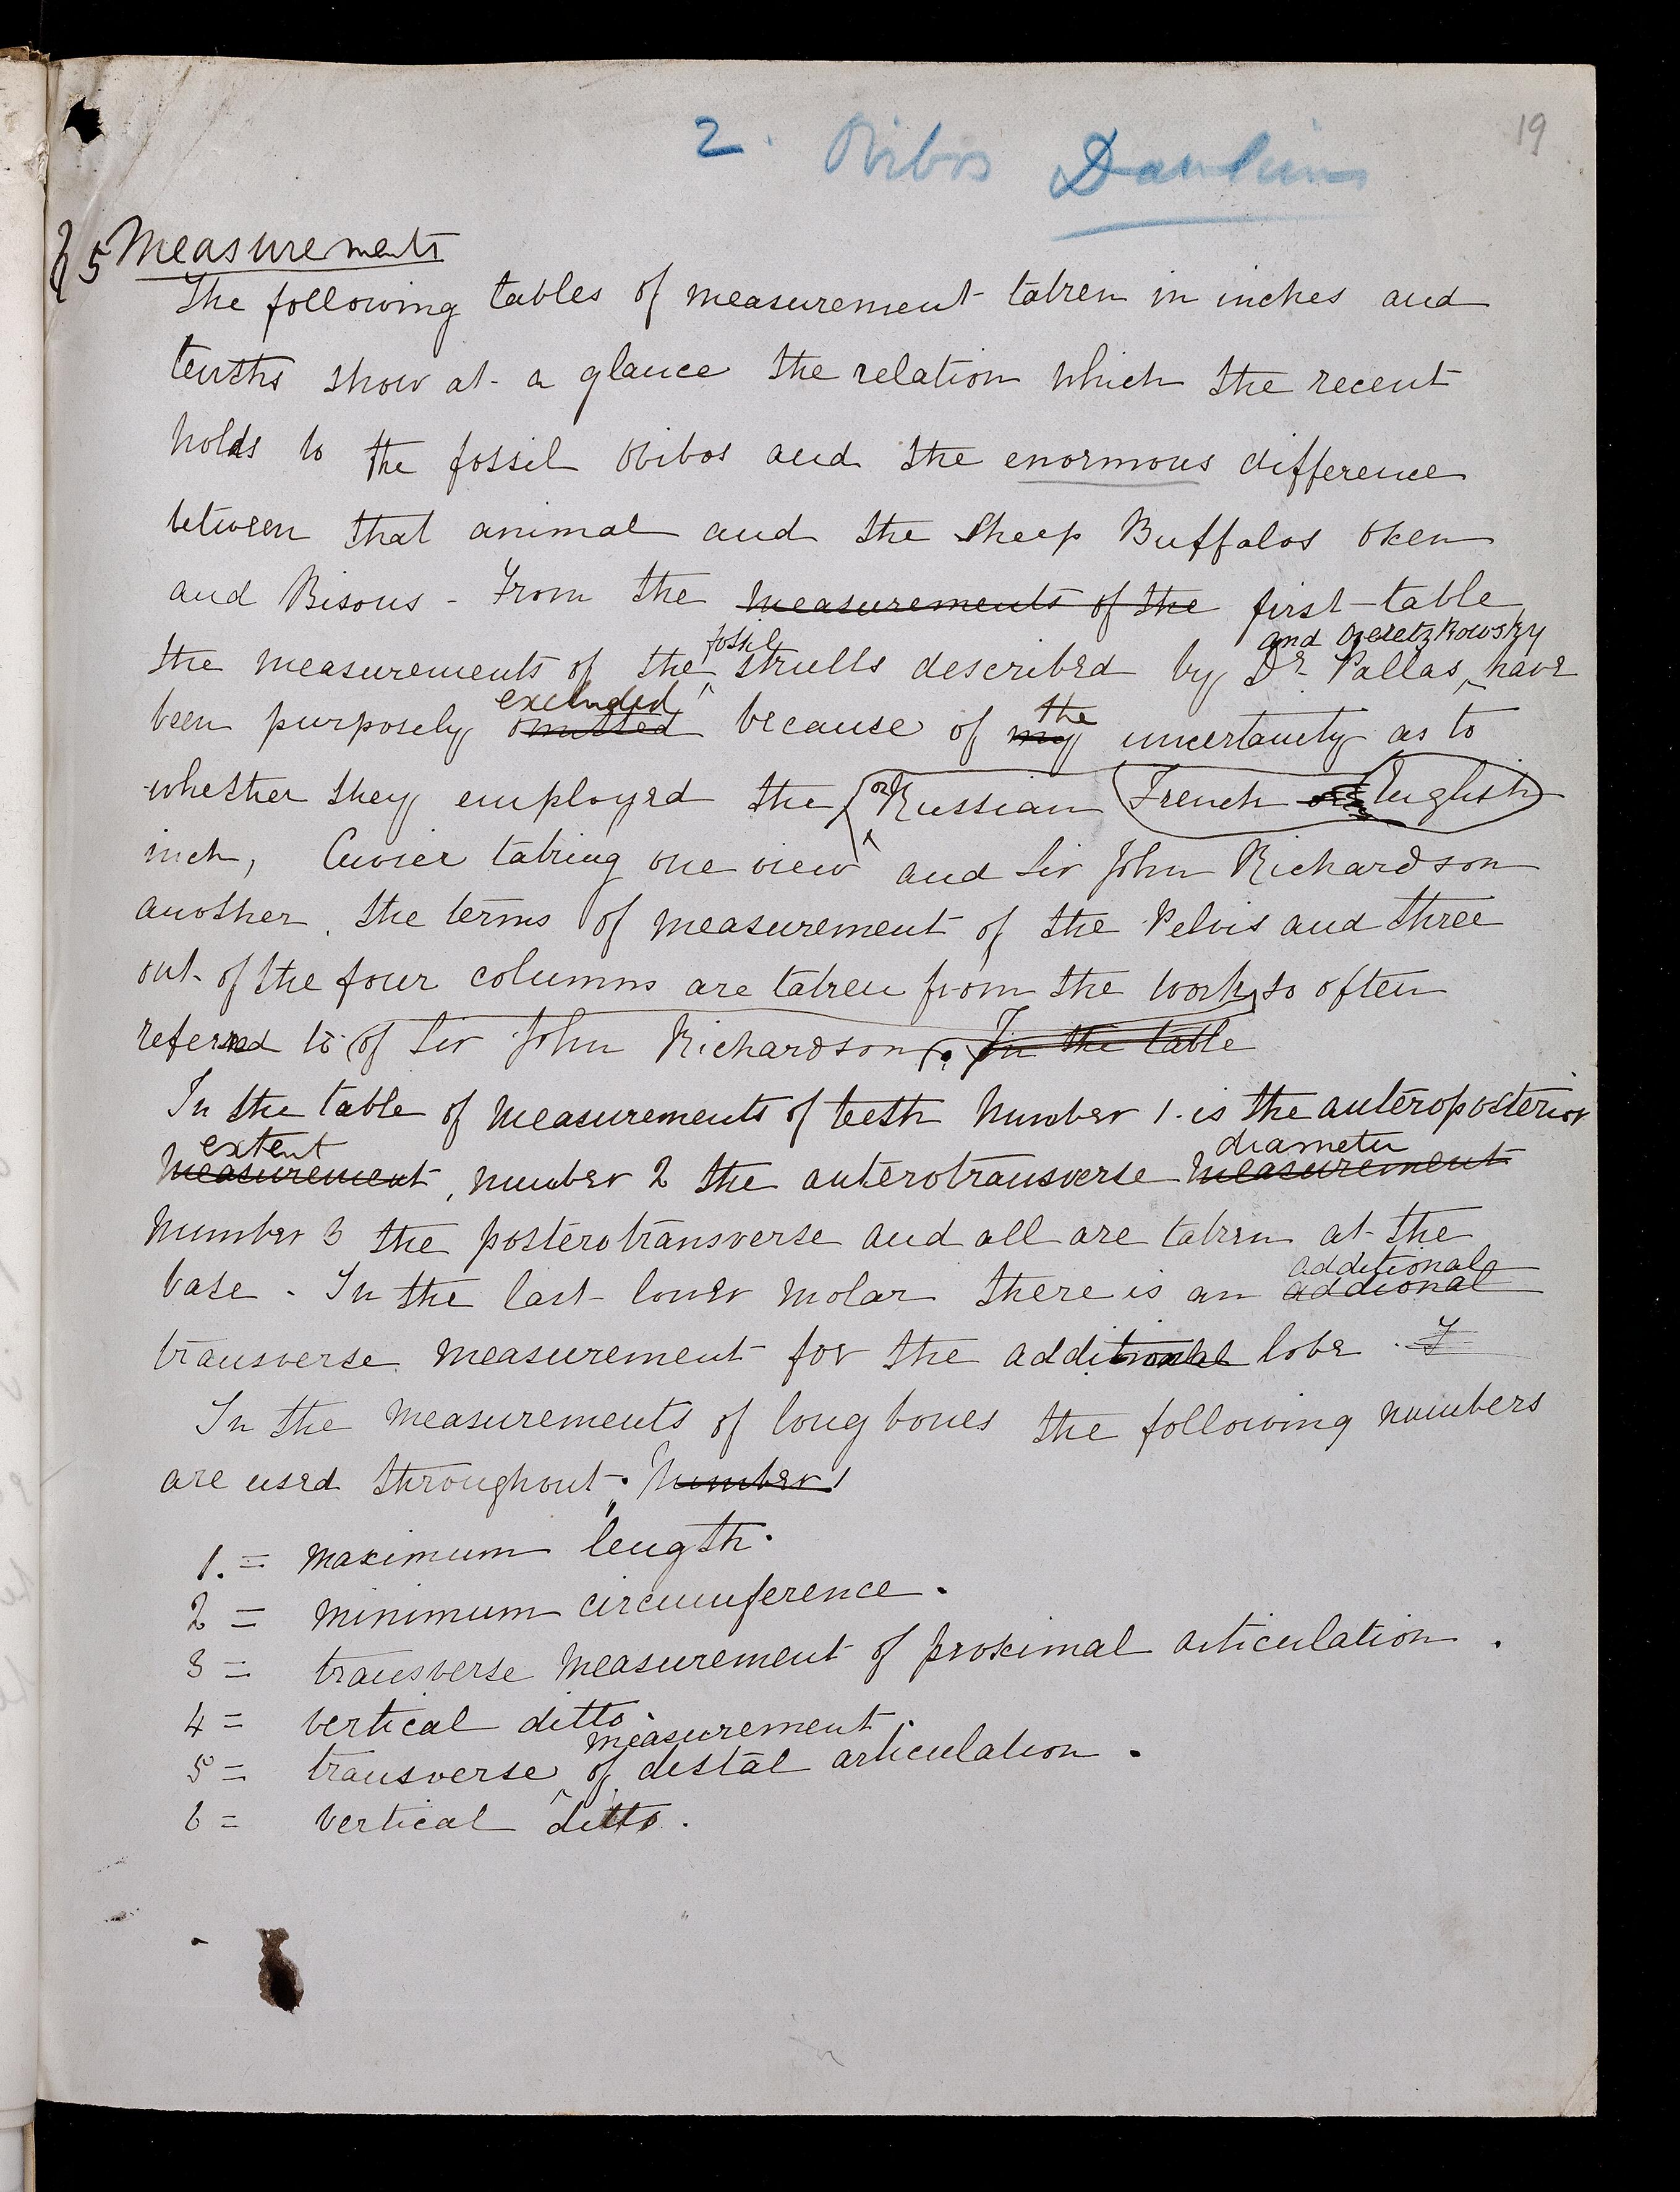 19
2. Ovibos Dawkins
§ 5 Measurements
The following tables of measurement taken in inches and
tenths show at a glance the relation which the recent
holds to the fossil Ovibos and the enormous difference
between that animal and the Sheep Buffalos Oxen
and Bisons - From the measurements of the first table
fossil and Ozeretzkowsky
the measurements of the skulls described by Dr. Pallas have
excluded the
been purposely omitted because of my uncertainty as to
whether they employed the or Russian French English
inch, Cuvier taking one view and Sir John Richardson
another. the terms of measurement of the Pelvis and three
out of the four columns are taken from the work so often
referred to of Sir John Richardson. In the table
In the table of measurements of teeth Number 1. is the anteroposterior
extent diameter
measurement, number 2 the anterotransverse measurement
Number 3 the posterotransverse and all are taken at the
additional
base. In the last lower molar there is an addional
transverse measurement for the additional lobe.
In the measurements of long bones the following numbers
are used throughout. Number 1
1. = Maximum length.
2 = Minimum circumference.
3 = transverse measurement of proximal articulation.
4 = vertical ditto.
measurement
5 = transverse of distal articulation.
6 = vertical ditto.